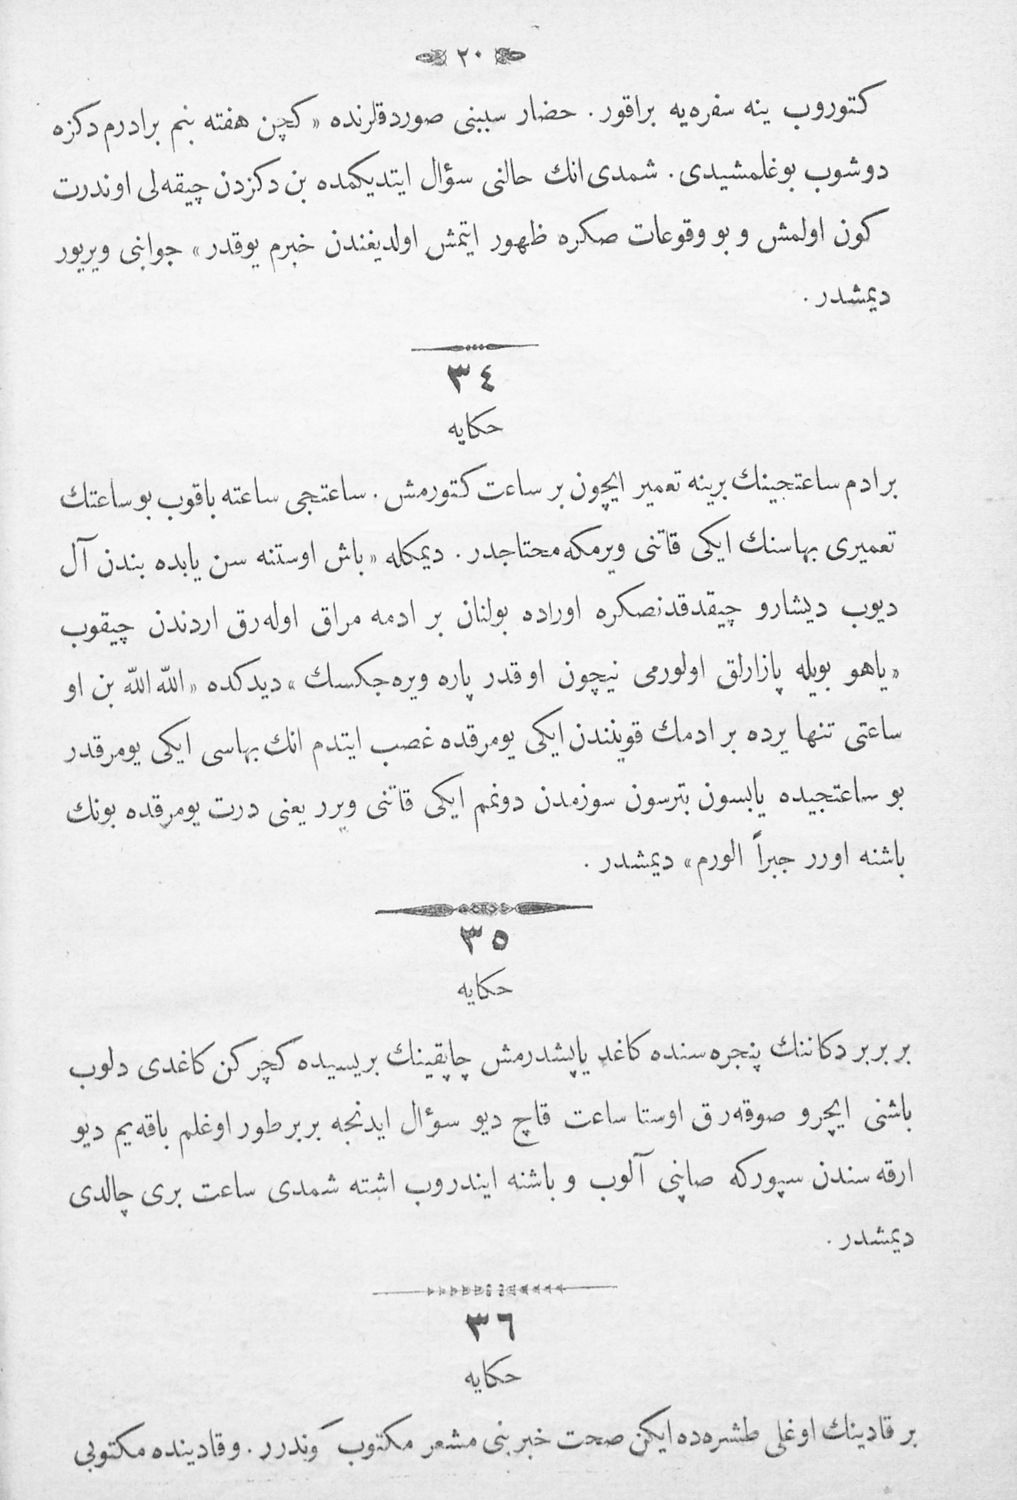 ٢٠
كتوروب ينه سفره‌يه براقور . حضار سببنى صوردقلرنده « كچن هفته بنم برادرم دكزه
دوشوب بوغلمشيدى . شمدى انك حالنى سؤال ايتديكمده بن دكزدن چيقه‌لى اوندرت
كون اولمش و بو وقوعات صكره ظهور ايتمش اولديغندن خبرم يوقدر » جوابنى ويريور
ديمشدر .
٣٤
حكايه
بر ادم ساعتجينك برينه تعمير ايچون بر ساعت كتورمش . ساعتجى ساعته باقوب بو ساعتك
تعميرى بهاسنك ايكى قاتنى ويرمكه محتاجدر . ديمكله « باش اوستنه سن ياب‌ده بندن آل
ديوب ديشارو چيقدقدنصكره اوراده بولنان بر ادمه مراق اوله‌رق اردندن چيقوب
« ياهو بويله پازارلق اولورمى نيچون اوقدر پاره ويره‌جكسك » ديدكده « الله الله بن او
ساعتى تنها يرده بر ادمك قويننندن ايكى يومرقده غصب ايتدم انك بهاسى ايكى يومرقدر
بو ساعتجيده يابسون بترسون سوزمدن دونمم ايكى قاتنى ويرر يعنى درت يومرقده بونك
باشنه اورر جبراً الورم » ديمشدر .
٣٥
حكايه
بر بربر دكاننك پنجره‌سنده كاغد ياپشدرمش چاپقينك بريسيده كچركن كاغدى دلوب
باشنى ايچرو صوقه‌رق اوستا ساعت قاچ ديو سؤال ايدنجه بربر طور اوغلم باقه‌يم ديو
ارقه سندن سپوركه صاپنى آلوب و باشنه ايندروب اشته شمدى ساعت برى چالدى
ديمشدر .
٣٦
حكايه
بر قادينك اوغلى طشره‌ده ايكن صحت خبرينى مشعر مكتوب كوندرر . و قادينده مكتوبى